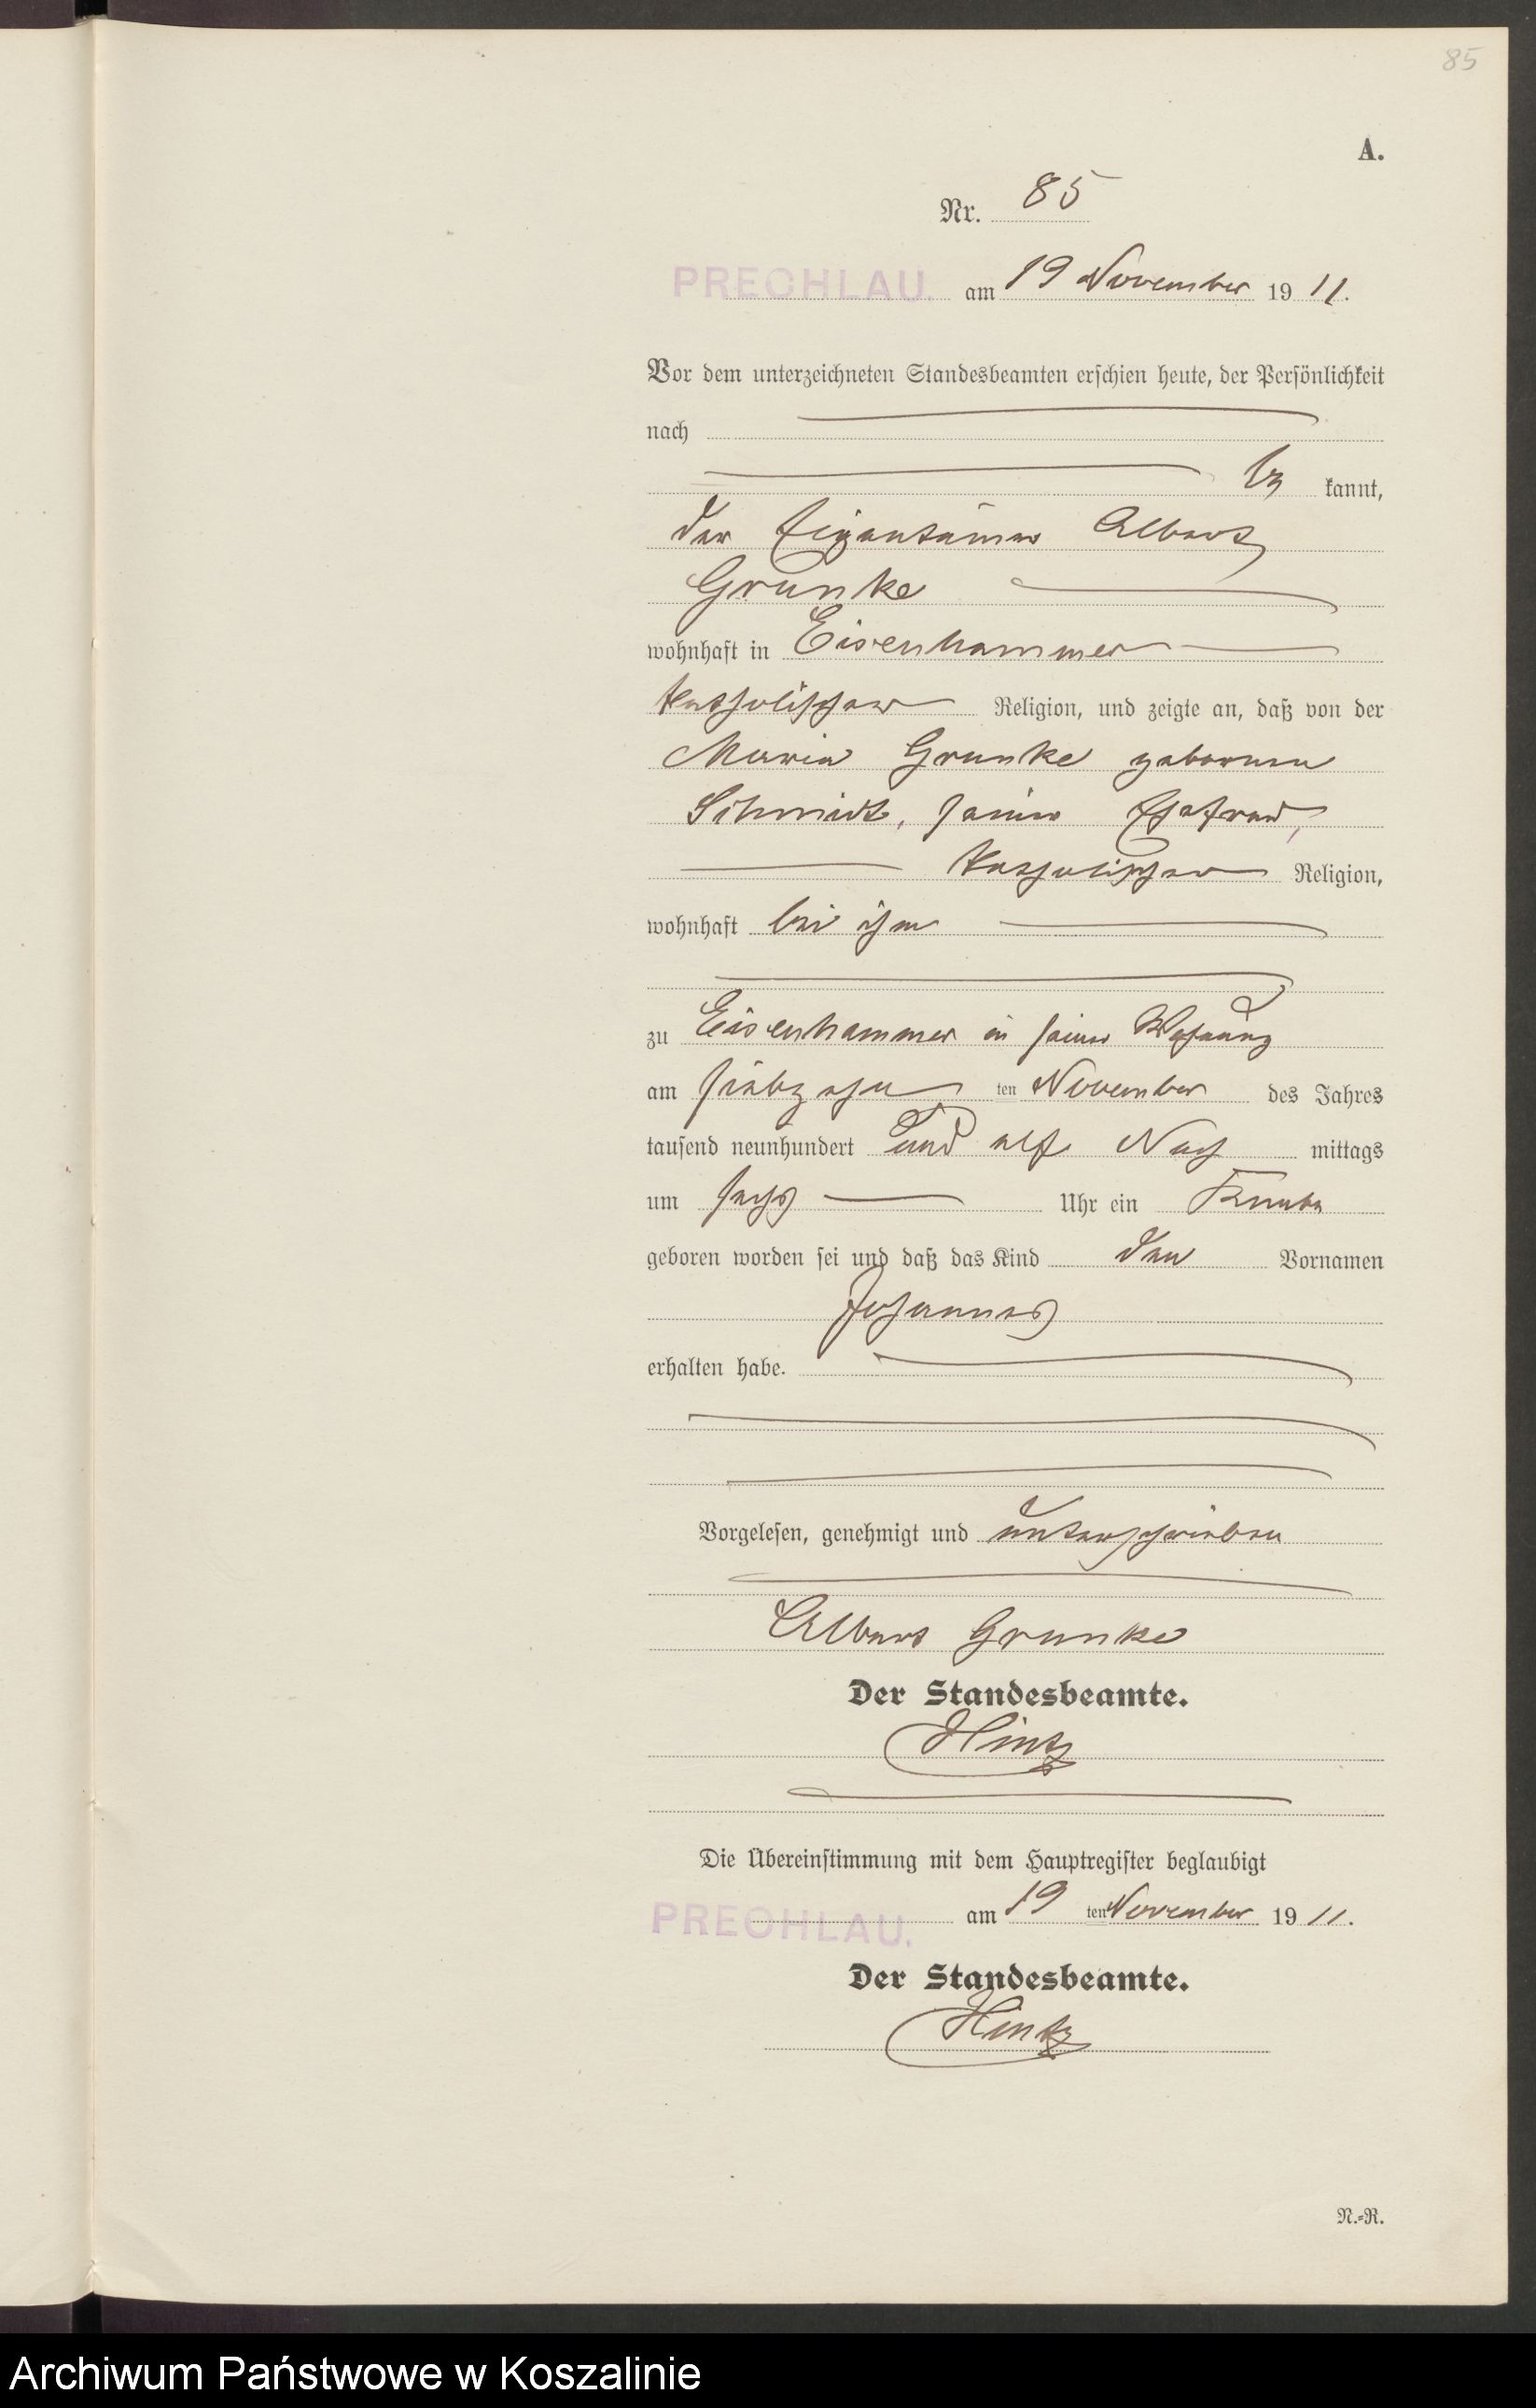 85
A.
Nr. 85
PRECHLAU. am 19 November 19 11.
Vor dem unterzeichneten Standesbeamten erschien heute, der Persönlichkeit
nach
be kannt,
der Eigentümer Albert
Grunke
wohnhaft in Eisenhammer
katholischer Religion, und zeigte an, daß von der
Maria Grunke geborenen
Schmidt, seiner Ehefrau,
katholischer Religion,
wohnhaft bei ihm
zu Eisenhammer in seiner Wohnung
am siebzehn ten November des Jahres
tausend neunhundert und elf Nach mittags
um sechs Uhr ein Knabe
geboren worden sei und daß das Kind den Vornamen
Johannes
erhalten habe.
Vorgelesen, genehmigt und unterschrieben
Albert Grunke
Der Standesbeamte.
Hintz
Die Übereinstimmung mit dem Hauptregister beglaubigt
PRECHLAU. am 19 ten November 19 11.
Der Standesbeamte.
Hintz
N.-R.
Archiwum Państwowe w Koszalinie